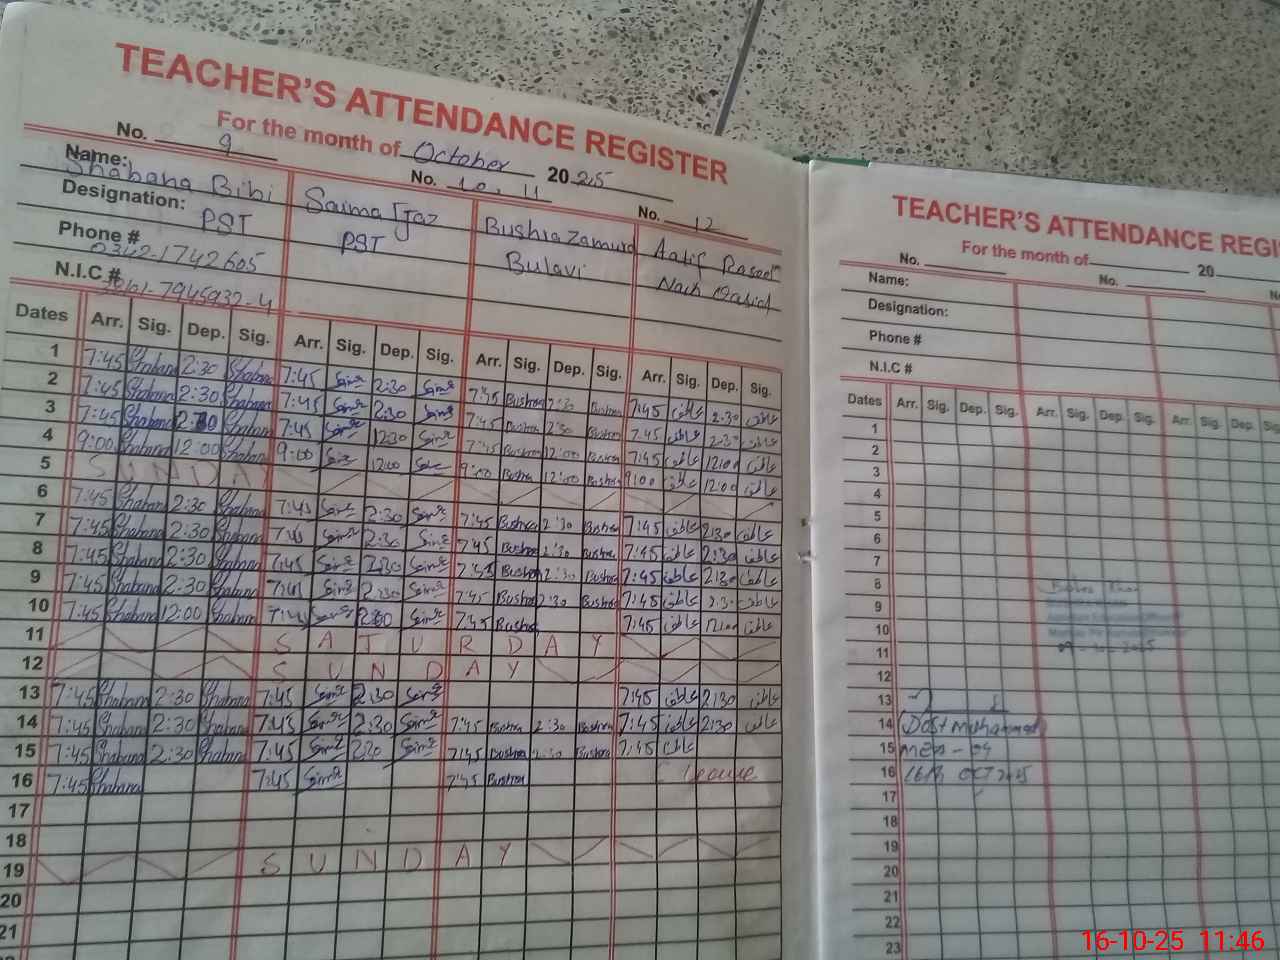 TEACHER'S ATTENDANCE REGISTER
For the month of October 2025
No. 9 No. 10, 11 No. 12
Name: Shabana Bibi Saima Ijaz Bushra Zamurd Aatif Raseed
Designation: PST PST Bulavi
Phone # 0342-1742605
N.I.C #
Dates Arr. Sig. Dep. Sig. Arr. Sig. Dep. Sig. Arr. Sig. Dep. Sig. Arr. Sig. Dep. Sig.
1 7:45 Shabana 2:30 Shabana 7:45 Saima 2:30 Saima 7:45 Bushra 2:30 Bushra 7:45 عاطف 2:30 عاطف
2 7:45 Shabana 2:30 Shabana 7:45 Saima 2:30 Saima 7:45 Bushra 2:30 Bushra 7:45 عاطف 2:30 عاطف
3 7:45 Shabana Shabana 7:45 Saima 12:30 Saima 7:45 Bushra 12:00 Bushra 7:45 عاطف 12:00 عاطف
4 9:00 Shabana 12:00 Shabana 9:00 Saima 12:00 Saima 9:00 Bushra 12:00 Bushra 9:00 عاطف 12:00 عاطف
5 SUNDAY
6 7:45 Shabana 2:30 Shabana 7:45 Saima 2:30 Saima 7:45 Bushra 2:30 Bushra 7:45 عاطف 2:30 عاطف
7 7:45 Shabana 2:30 Shabana 7:45 Saima 2:30 Saima 7:45 Bushra 2:30 Bushra 7:45 عاطف 2:30 عاطف
8 7:45 Shabana 2:30 Shabana 7:45 Saima 2:30 Saima 7:45 Bushra 2:30 Bushra 7:45 عاطف 2:30 عاطف
9 7:45 Shabana 2:30 Shabana 7:45 Saima 2:30 Saima 7:45 Bushra 2:30 Bushra 7:45 عاطف 2:30 عاطف
10 7:45 Shabana 12:00 Shabana 7:45 Saima Saima 7:45 Bushra 7:45 عاطف 12:00 عاطف
11 SATURDAY
12 SUNDAY
13 7:45 Shabana 2:30 Shabana 7:45 Saima 2:30 Saima 7:45 عاطف 2:30 عاطف
14 7:45 Shabana 2:30 Shabana 7:45 Saima 2:30 Saima 7:45 Bushra 2:30 Bushra 7:45 عاطف 2:30 عاطف
15 7:45 Shabana 2:30 Shabana 7:45 Saima 2:30 Saima 7:45 Bushra 2:30 Bushra 7:45 عاطف
16 7:45 Shabana 7:45 Saima 7:45 Bushra Leave
17
18
19 SUNDAY
20
21
TEACHER'S ATTENDANCE REGI
For the month of 20
No. No.
Name:
Designation:
Phone #
N.I.C #
Dates Arr. Sig. Dep. Sig. Arr. Sig. Dep. Sig. Arr. Sig. Dep.
1
2
3
4
5
6
7
8
9
10
11
12
13
14 (Dost Muhammad)
15 MEA - 04
16 16th OCT 2025
17
18
19
20
21
22
23
16-10-25 11:46